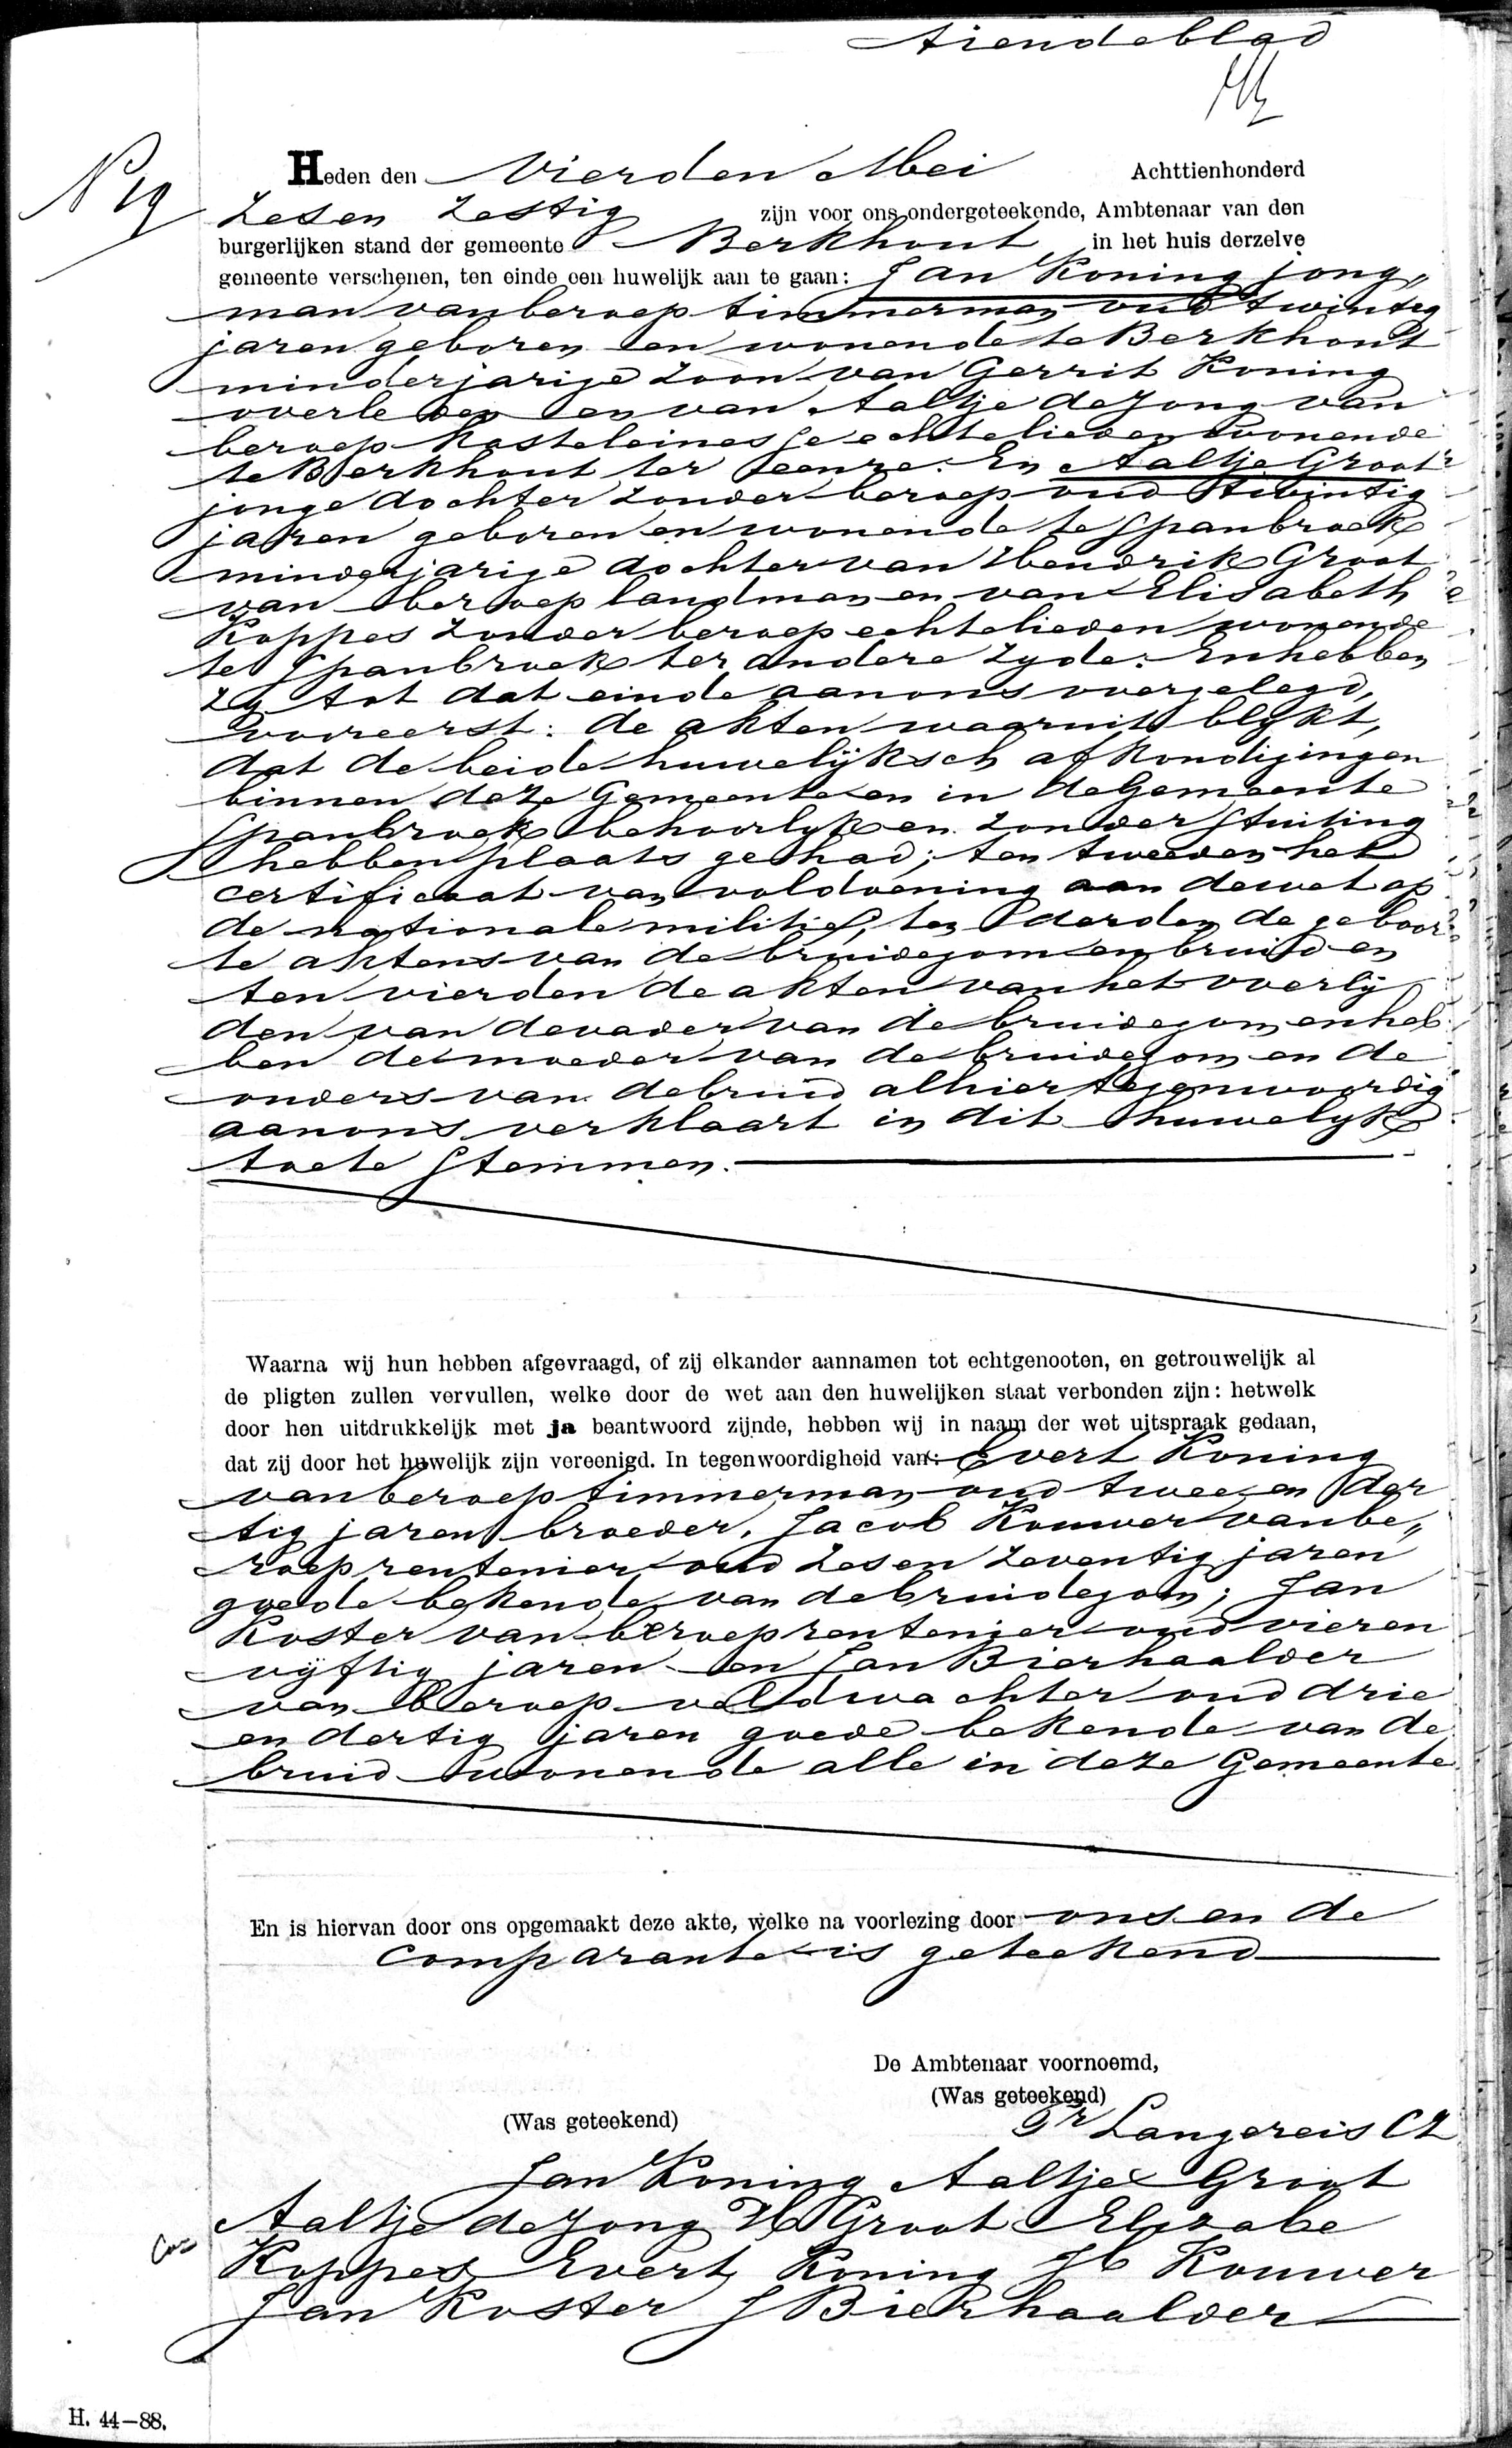 tiendeblad
N 19
Heden den Vierden Mei Achttienhonderd
Zes en Zestig zijn voor ons ondergeteekende, Ambtenaar van den
burgerlijken stand der gemeente Berkhout in het huis derzelve
gemeente verschenen, ten einde een huwelijk aan te gaan: Jan Koning jong„
man van beroep timmerman oud twintig
jaren geboren en wonende te Berkhout
minderjarige Zoon van Gerrit Koning
overleden en van Aaltje de Jong van
beroep kasteleinesse echtelieden wonende
te Berkhout ter eenre. En Aaltje Groot
jonge dochter zonder beroep oud twintig
jaren geboren en wonende te Spanbroek
minderjarige dochter van Hendrik Groot
van beroep landman en van Elisabeth
Koppes zonder beroep echtelieden wonende
te Spanbroek ter andere zyde. En hebben
zy tot dat einde aan ons overgelegd,
vooreerst: de akten waaruit blykt,
dat de beide huwelijksch afkondigingen
binnen deze Gemeente en in de Gemeente
Spanbroek behoorlyk en zonder stuiting
hebben plaats gehad; ten tweeden het
certificaat van voldoening aan de wet op
de nationale militie, ten derden de geboor
te aktens van de bruidegom en bruid en
ten vierden de akten van het overlij
den van de vader van de bruidegom en heb
ben de moeder van de bruidegom en de
ouders van de bruid alhier tegenwoordig
aan ons verklaart in dit huwelyk
toe te stemmen.
Waarna wij hun hebben afgevraagd, of zij elkander aannamen tot echtgenooten, en getrouwelijk al
de pligten zullen vervullen, welke door de wet aan den huwelijken staat verbonden zijn: hetwelk
door hen uitdrukkelijk met ja beantwoord zijnde, hebben wij in naam der wet uitspraak gedaan,
dat zij door het huwelijk zijn vereenigd. In tegenwoordigheid van: Evert Koning
van beroep timmerman oud twee en der
tig jaren broeder, Jacob Kouwer van be„
roep rentenier oud Zes en Zeventig jaren
goede bekende van de bruidegom; Jan
Koster van beroep rentenier oud vier en
vijftig jaren en Jan Bierhaalder
van beroep veldwachter oud drie
en dertig jaren goede bekende van de
bruid wonende alle in deze Gemeente
En is hiervan door ons opgemaakt deze akte, welke na voorlezing door ons en de
comparante is geteekend
De Ambtenaar voornoemd,
(Was geteekend)
(Was geteekend)
Langereis Cz
Jan Koning Aaltje Groot
Aaltje de Jong H Groot Elizabe
Koppes Evert Koning Jb Kouwer
Jan Koster J Bierhaalder
H. 44—88.